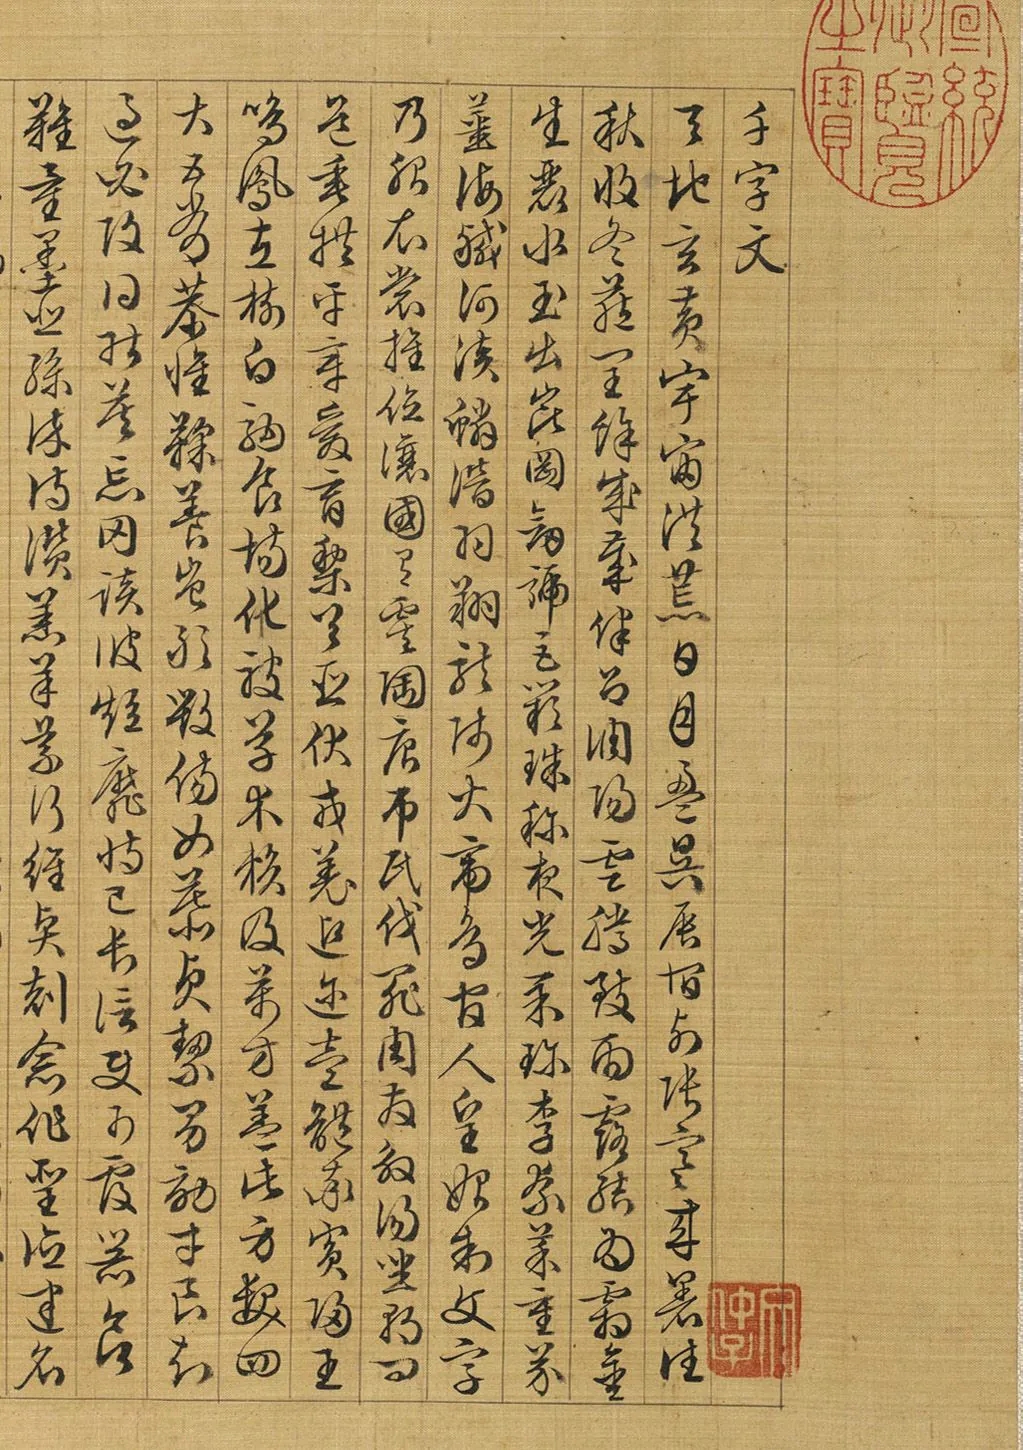 千字文
天地玄黃宇宙洪荒日月盈昃辰宿列張寒來暑往
秋收冬藏閏餘成歲律呂調陽雲騰致雨露結為霜金
生麗水玉出崑岡劍號巨闕珠稱夜光果珍李柰菜重芥
薑海鹹河淡鱗潛羽翔龍師火帝鳥官人皇始制文字
乃服衣裳推位讓國有虞陶唐弔民伐罪周發殷湯坐朝問
道垂拱平章愛育黎首臣伏戎羌遐邇壹體率賓歸王
鳴鳳在樹白駒食場化被草木賴及萬方蓋此身髮四
大五常恭惟鞠養豈敢毀傷女慕貞絜男效才良知
過必改得能莫忘罔談彼短靡恃己長信使可覆器欲
難量墨悲絲染詩讚羔羊景行維賢剋念作聖德建名
宣統御覽之寶